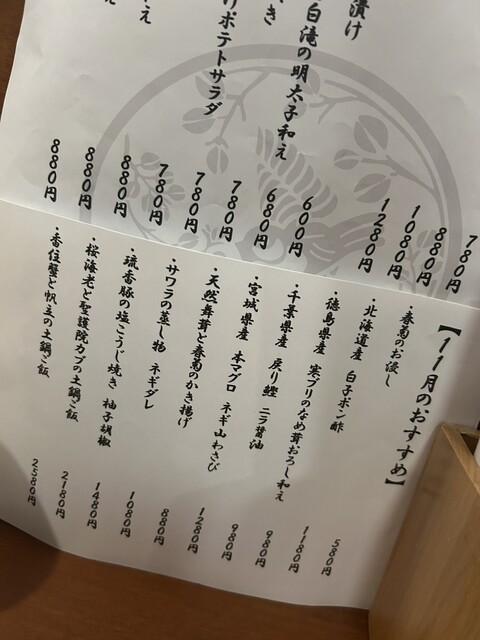 780円
880円
1080円
1280円
漬け
白滝の明太子和え 600円
き 680円
ポテトサラダ 780円
780円
780円
え 880円
880円
880円
【11月のおすすめ】
・春菊のお浸し 580円
・北海道産 白子ポン酢 1180円
・徳島県産 寒ブリのなめ茸おろし和え 980円
・千葉県産 戻り鰹 ニラ醤油 980円
・宮城県産 本マグロ ネギ山わさび 1280円
・天然舞茸と春菊のかき揚げ 880円
・サワラの蒸し物 ネギダレ 1080円
・琉香豚の塩こうじ焼き 柚子胡椒 1480円
・桜海老と聖護院カブの土鍋ご飯 2180円
・香住蟹と帆立の土鍋ご飯 2580円